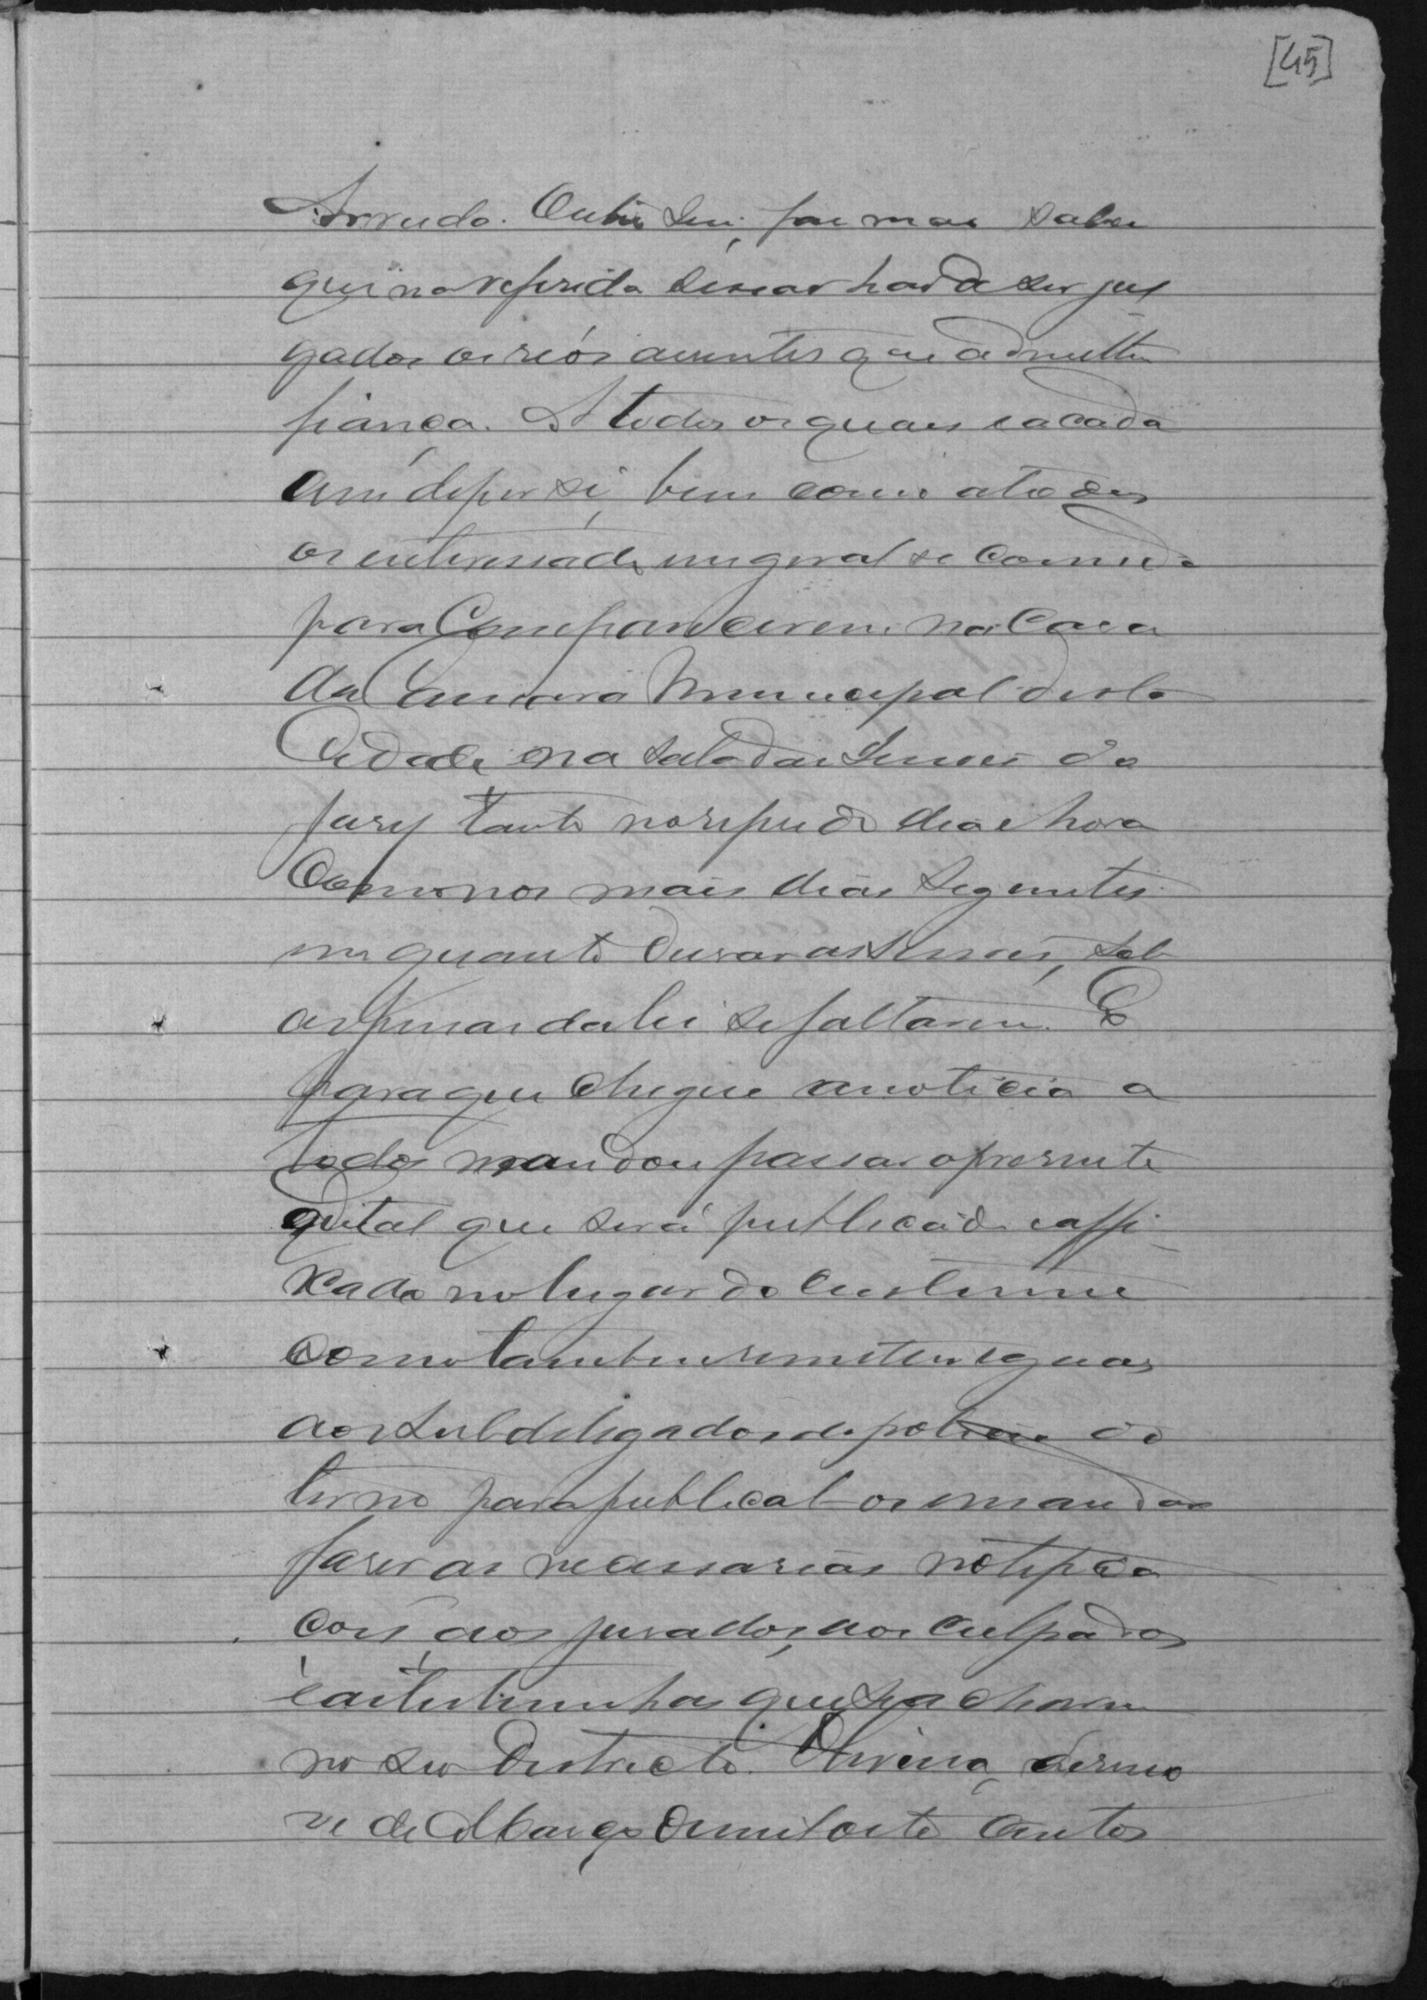 [45]
Arruda. Outro sim, faz mais saber
que na referida sessão hão de ser jul
gados os reós ausentes que admittem
fiança. A todos os quaes e a cada
um de per si, bem como a todos
os interessados em geral se convida
para comparecerem na Casa
da Camara Municipal desta
Cidade, na sala das Sessões do
Jury tanto no referido dia e hora
como nos mais dias seguintes
em quanto durar as sessões, sob
as penas da lei se faltarem. E
para que chegue a noticia a
todos mandou passar o presente
edital que será publicado e affi-
xado no lugar do Custume
como tambem remetter iguas
aos Subdelegados de policia do
termo para publical-os e mandar
fazer as necessarias notifica
cões, aos jurados, aos culpados
e as testimunhas que se acharem
no seo Districto. Oliveira, deseno
ve de Março de mil oito centos